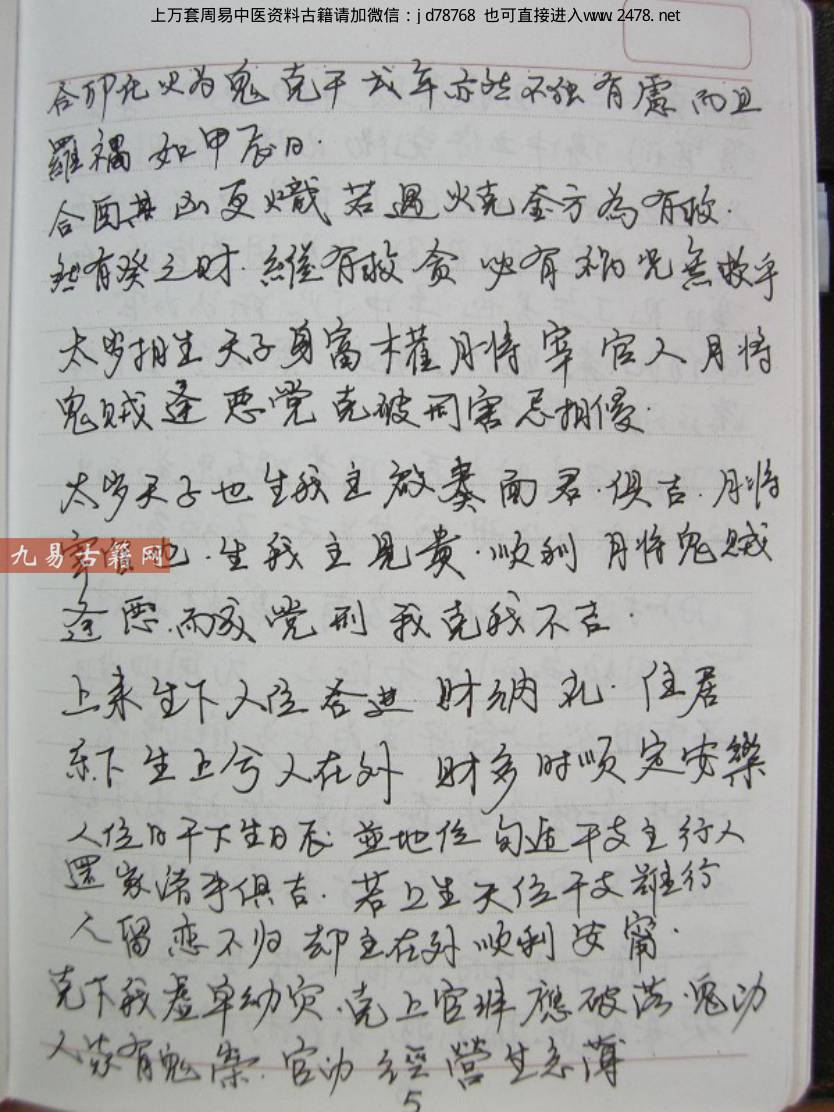 上万套周易中医资料古籍请加微信：jd78768 也可直接进入www.2478.net
合卯化火为鬼克干戌年亦然不独有慮而且
羅禍如甲辰日.
合酉其凶更熾若遇火克金方為有救.
然有癸之財.維有救贪必有祸况無救乎
太岁相生天子身富權月将宰官入月将
鬼贼逢恶党克破刑害忌相侵.
太岁天子也生我主啟奏面君.俱吉.月将
九易古籍网
宰也.生我主見貴.顺利月将鬼贼
逢恶.而成党刑我克我不吉.
上来生下入位者進財纳礼.住居
下生上兮人在外財多时顺定安樂
人位日干下生日辰並地位干支主行人
還家诸事俱吉.若上生天位干支難行
人留恋不归却主在外顺利安甯.
克下我虚卑幼灾.克上官非應破落.鬼动
人有鬼祟.官动經營生意薄
5